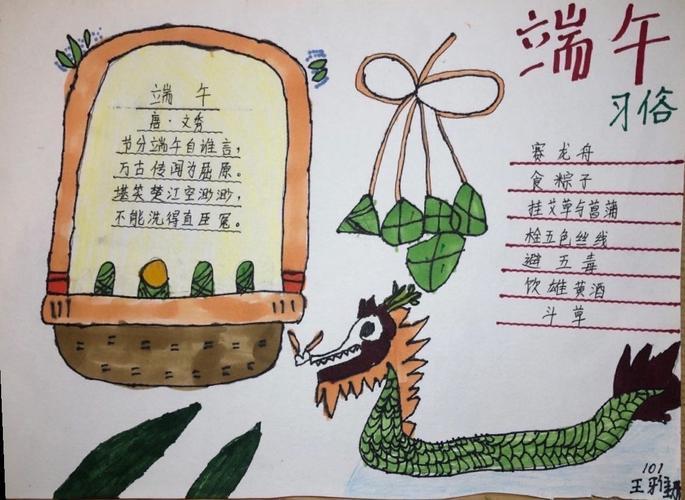 端午
唐·文秀
节分端午自谁言，
万古传闻为屈原。
堪笑楚江空渺渺，
不能洗得直臣冤。
端午
习俗
赛龙舟
食粽子
挂艾草与菖蒲
栓五色丝线
避五毒
饮雄黄酒
斗草
101
王雅